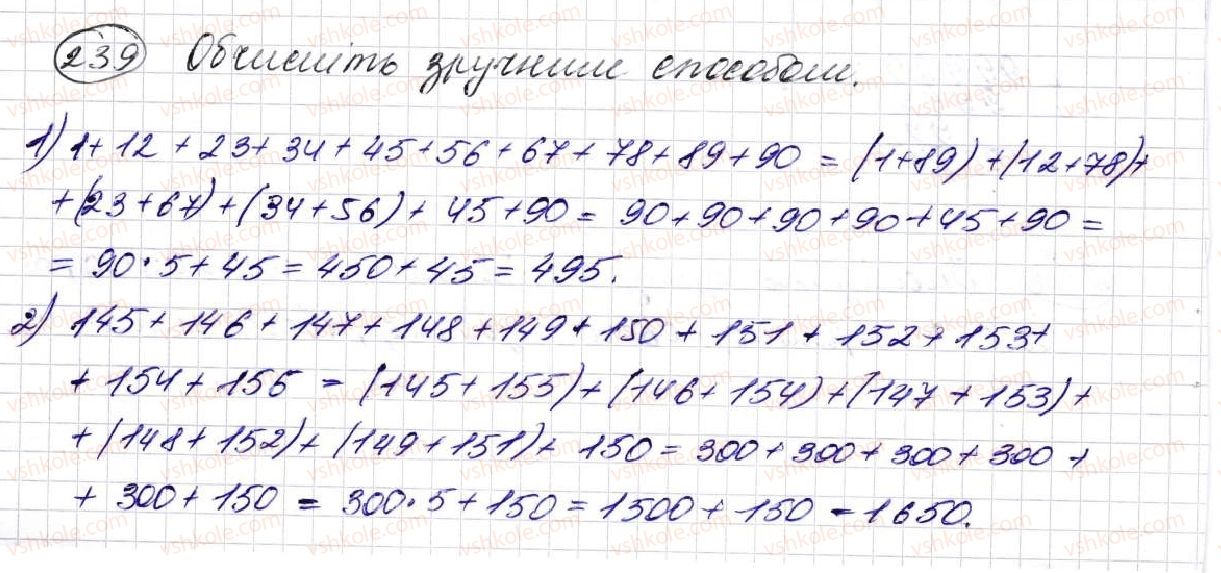 239 Обчисліть зручним способом.
1) 1+12+23+34+45+56+67+78+89+90=(1+89)+(12+78)+
+(23+67)+(34+56)+45+90=90+90+90+90+45+90=
=90·5+45=450+45=495.
2) 145+146+147+148+149+150+151+152+153+
+154+155=(145+155)+(146+154)+(147+153)+
+(148+152)+(149+151)+150=300+300+300+300+
+300+150=300·5+150=1500+150=1650.